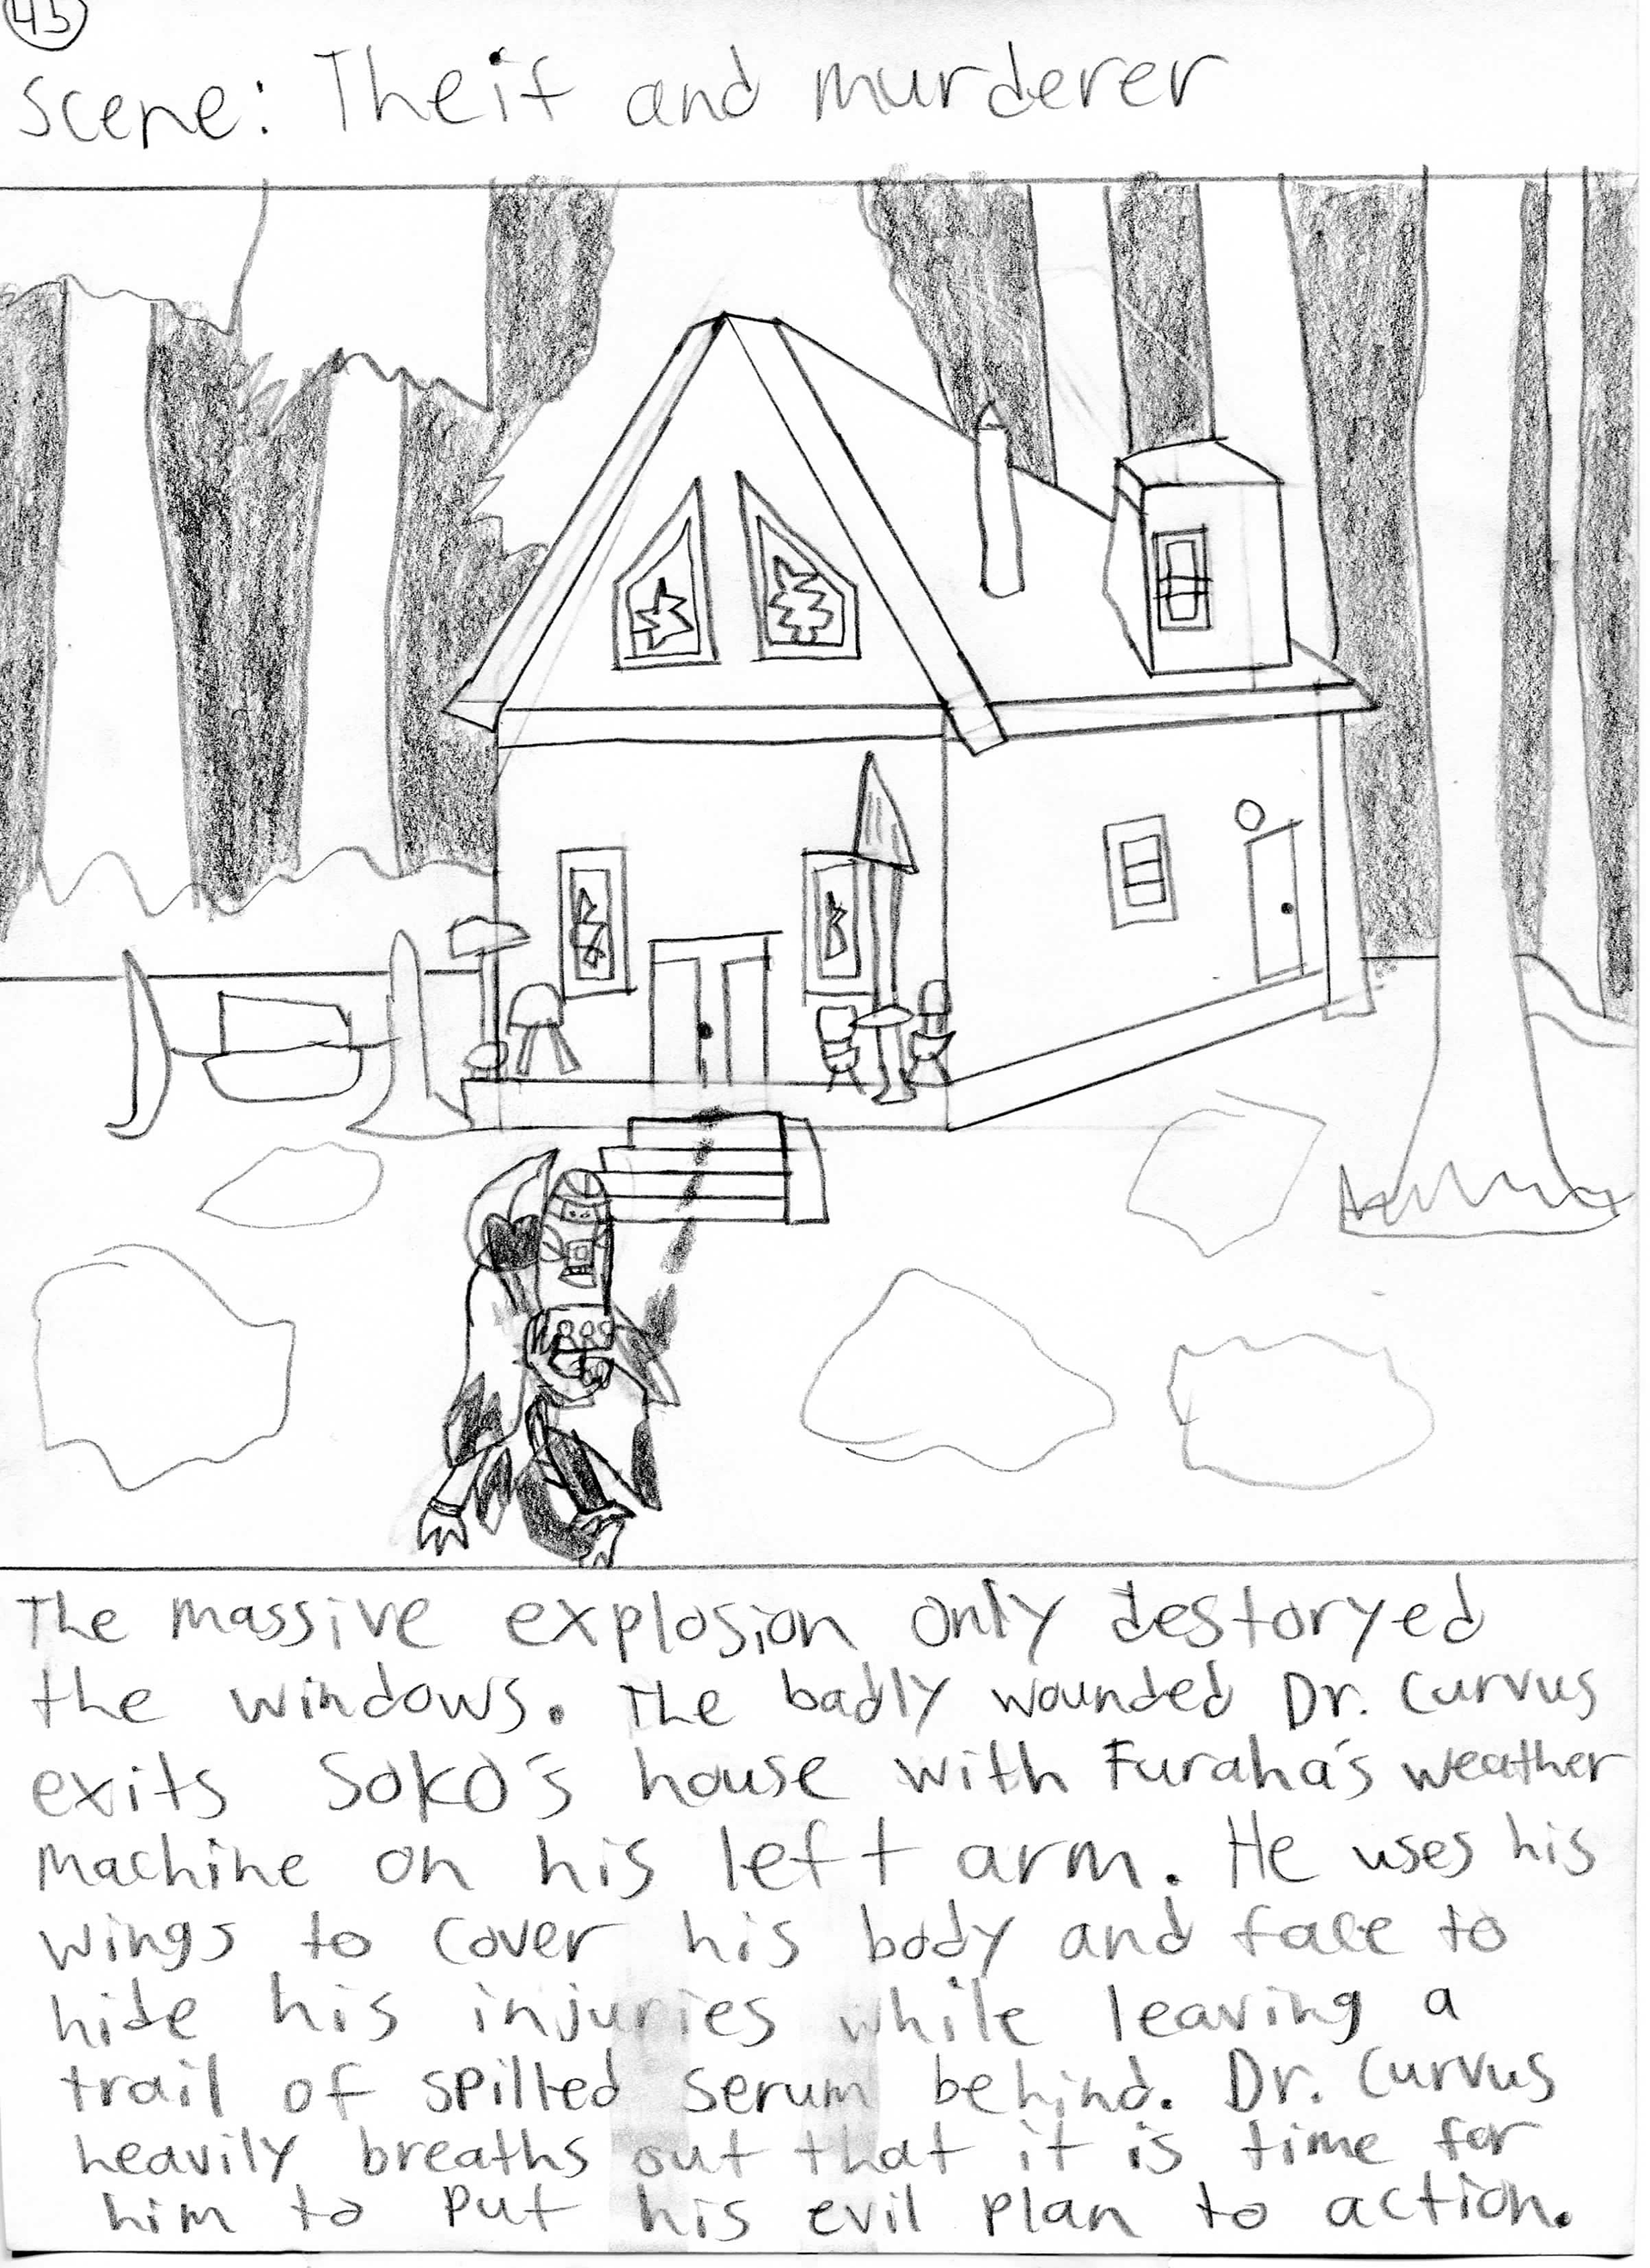 45
Scene: Theif and murderer
The massive explosion only destoryed
the windows. The badly wounded Dr. Curvus
exits Soko's house with Furaha's weather
machine on his left arm. He uses his
wings to cover his body and face to
hide his injuries while leaving a
trail of spilled serum behind. Dr. Curvus
heavily breaths out that it is time for
him to put his evil plan to action.